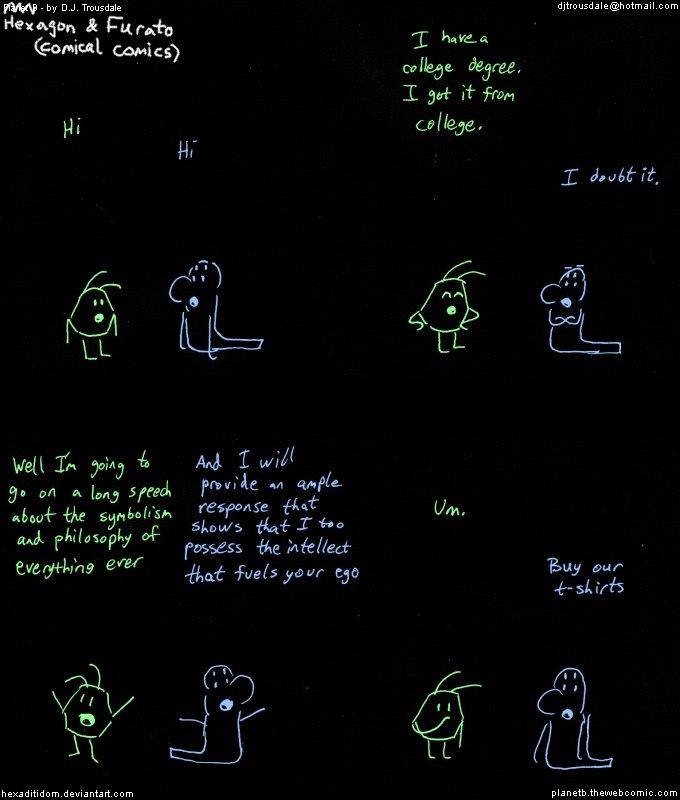 Planet B - by D.J. Trousdale
djtrousdale@hotmail.com
Hexagon & Furato
(comical comics)
Hi
Hi
I have a
college degree.
I got it from
college.
I doubt it.
Well I'm going to
go on a long speech
about the symbolism
and philosophy of
everything ever
And I will
provide an ample
response that
shows that I too
possess the intellect
that fuels your ego
Um.
Buy our
t-shirts
hexaditidom.deviantart.com
planetb.thewebcomic.com